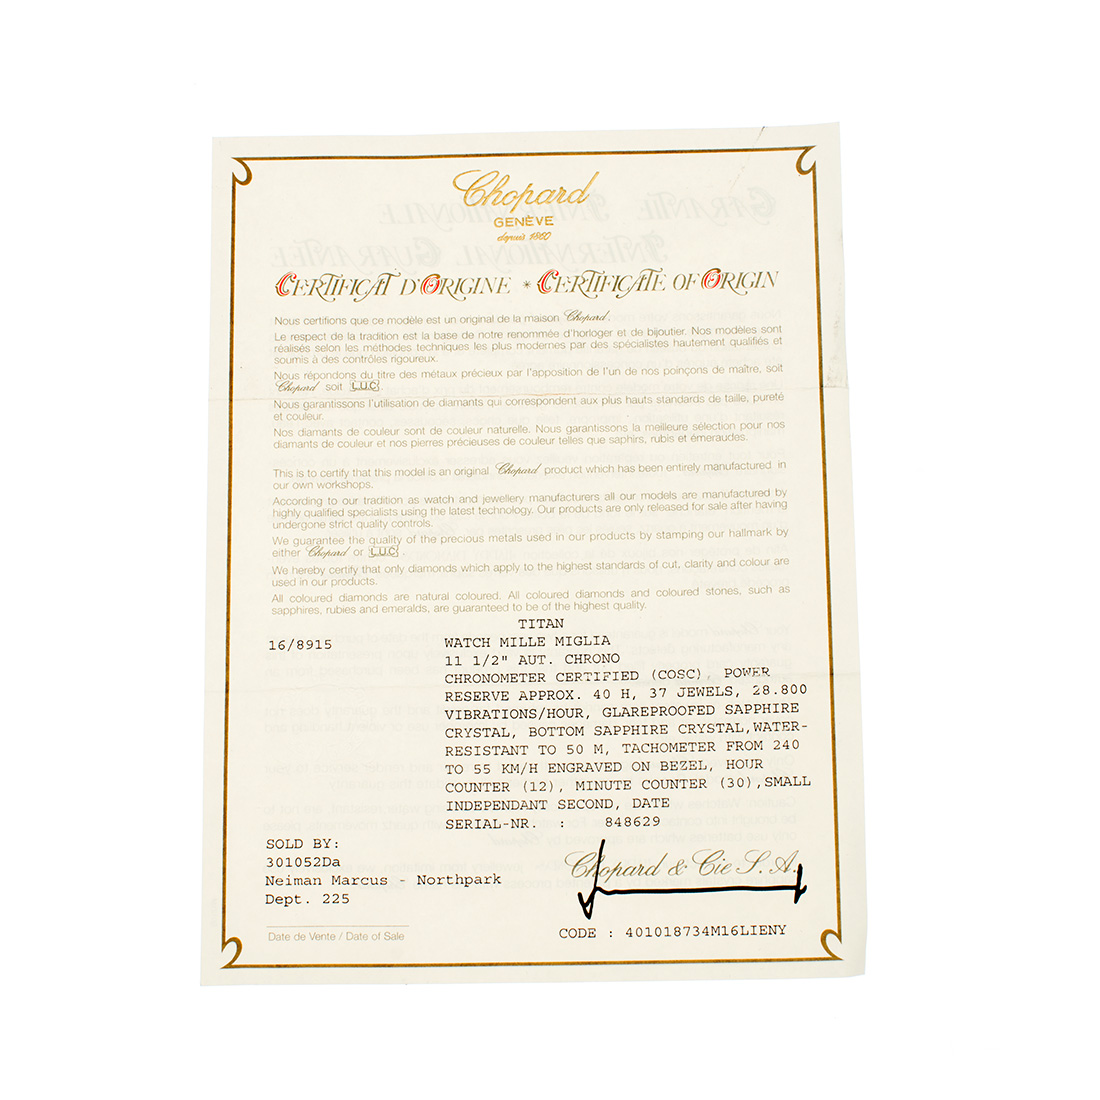 Chopard
GENÈVE
depuis 1860
CERTIFICAT D'ORIGINE * CERTIFICATE OF ORIGIN
Nous certifions que ce modèle est un original de la maison Chopard.
Le respect de la tradition est la base de notre renommée d'horloger et de bijoutier. Nos modèles sont
réalisés selon les méthodes techniques les plus modernes par des spécialistes hautement qualifiés et
soumis à des contrôles rigoureux.
Nous répondons du titre des métaux précieux par l'apposition de l'un de nos poinçons de maître, soit
Chopard soit L.U.C.
Nous garantissons l'utilisation de diamants qui correspondent aux plus hauts standards de taille, pureté
et couleur.
Nos diamants de couleur sont de couleur naturelle. Nous garantissons la meilleure sélection pour nos
diamants de couleur et nos pierres précieuses de couleur telles que saphirs, rubis et émeraudes.
This is to certify that this model is an original Chopard product which has been entirely manufactured in
our own workshops.
According to our tradition as watch and jewellery manufacturers all our models are manufactured by
highly qualified specialists using the latest technology. Our products are only released for sale after having
undergone strict quality controls.
We guarantee the quality of the precious metals used in our products by stamping our hallmark by
either Chopard or L.U.C.
We hereby certify that only diamonds which apply to the highest standards of cut, clarity and colour are
used in our products.
All coloured diamonds are natural coloured. All coloured diamonds and coloured stones, such as
sapphires, rubies and emeralds, are guaranteed to be of the highest quality.
TITAN
16/8915 WATCH MILLE MIGLIA
11 1/2" AUT. CHRONO
CHRONOMETER CERTIFIED (COSC), POWER
RESERVE APPROX. 40 H, 37 JEWELS, 28.800
VIBRATIONS/HOUR, GLAREPROOFED SAPPHIRE
CRYSTAL, BOTTOM SAPPHIRE CRYSTAL,WATER-
RESISTANT TO 50 M, TACHOMETER FROM 240
TO 55 KM/H ENGRAVED ON BEZEL, HOUR
COUNTER (12), MINUTE COUNTER (30),SMALL
INDEPENDANT SECOND, DATE
SERIAL-NR. : 848629
SOLD BY:
301052Da
Neiman Marcus - Northpark
Dept. 225
Chopard & Cie S.A.
Date de Vente / Date of Sale
CODE : 401018734M16LIENY